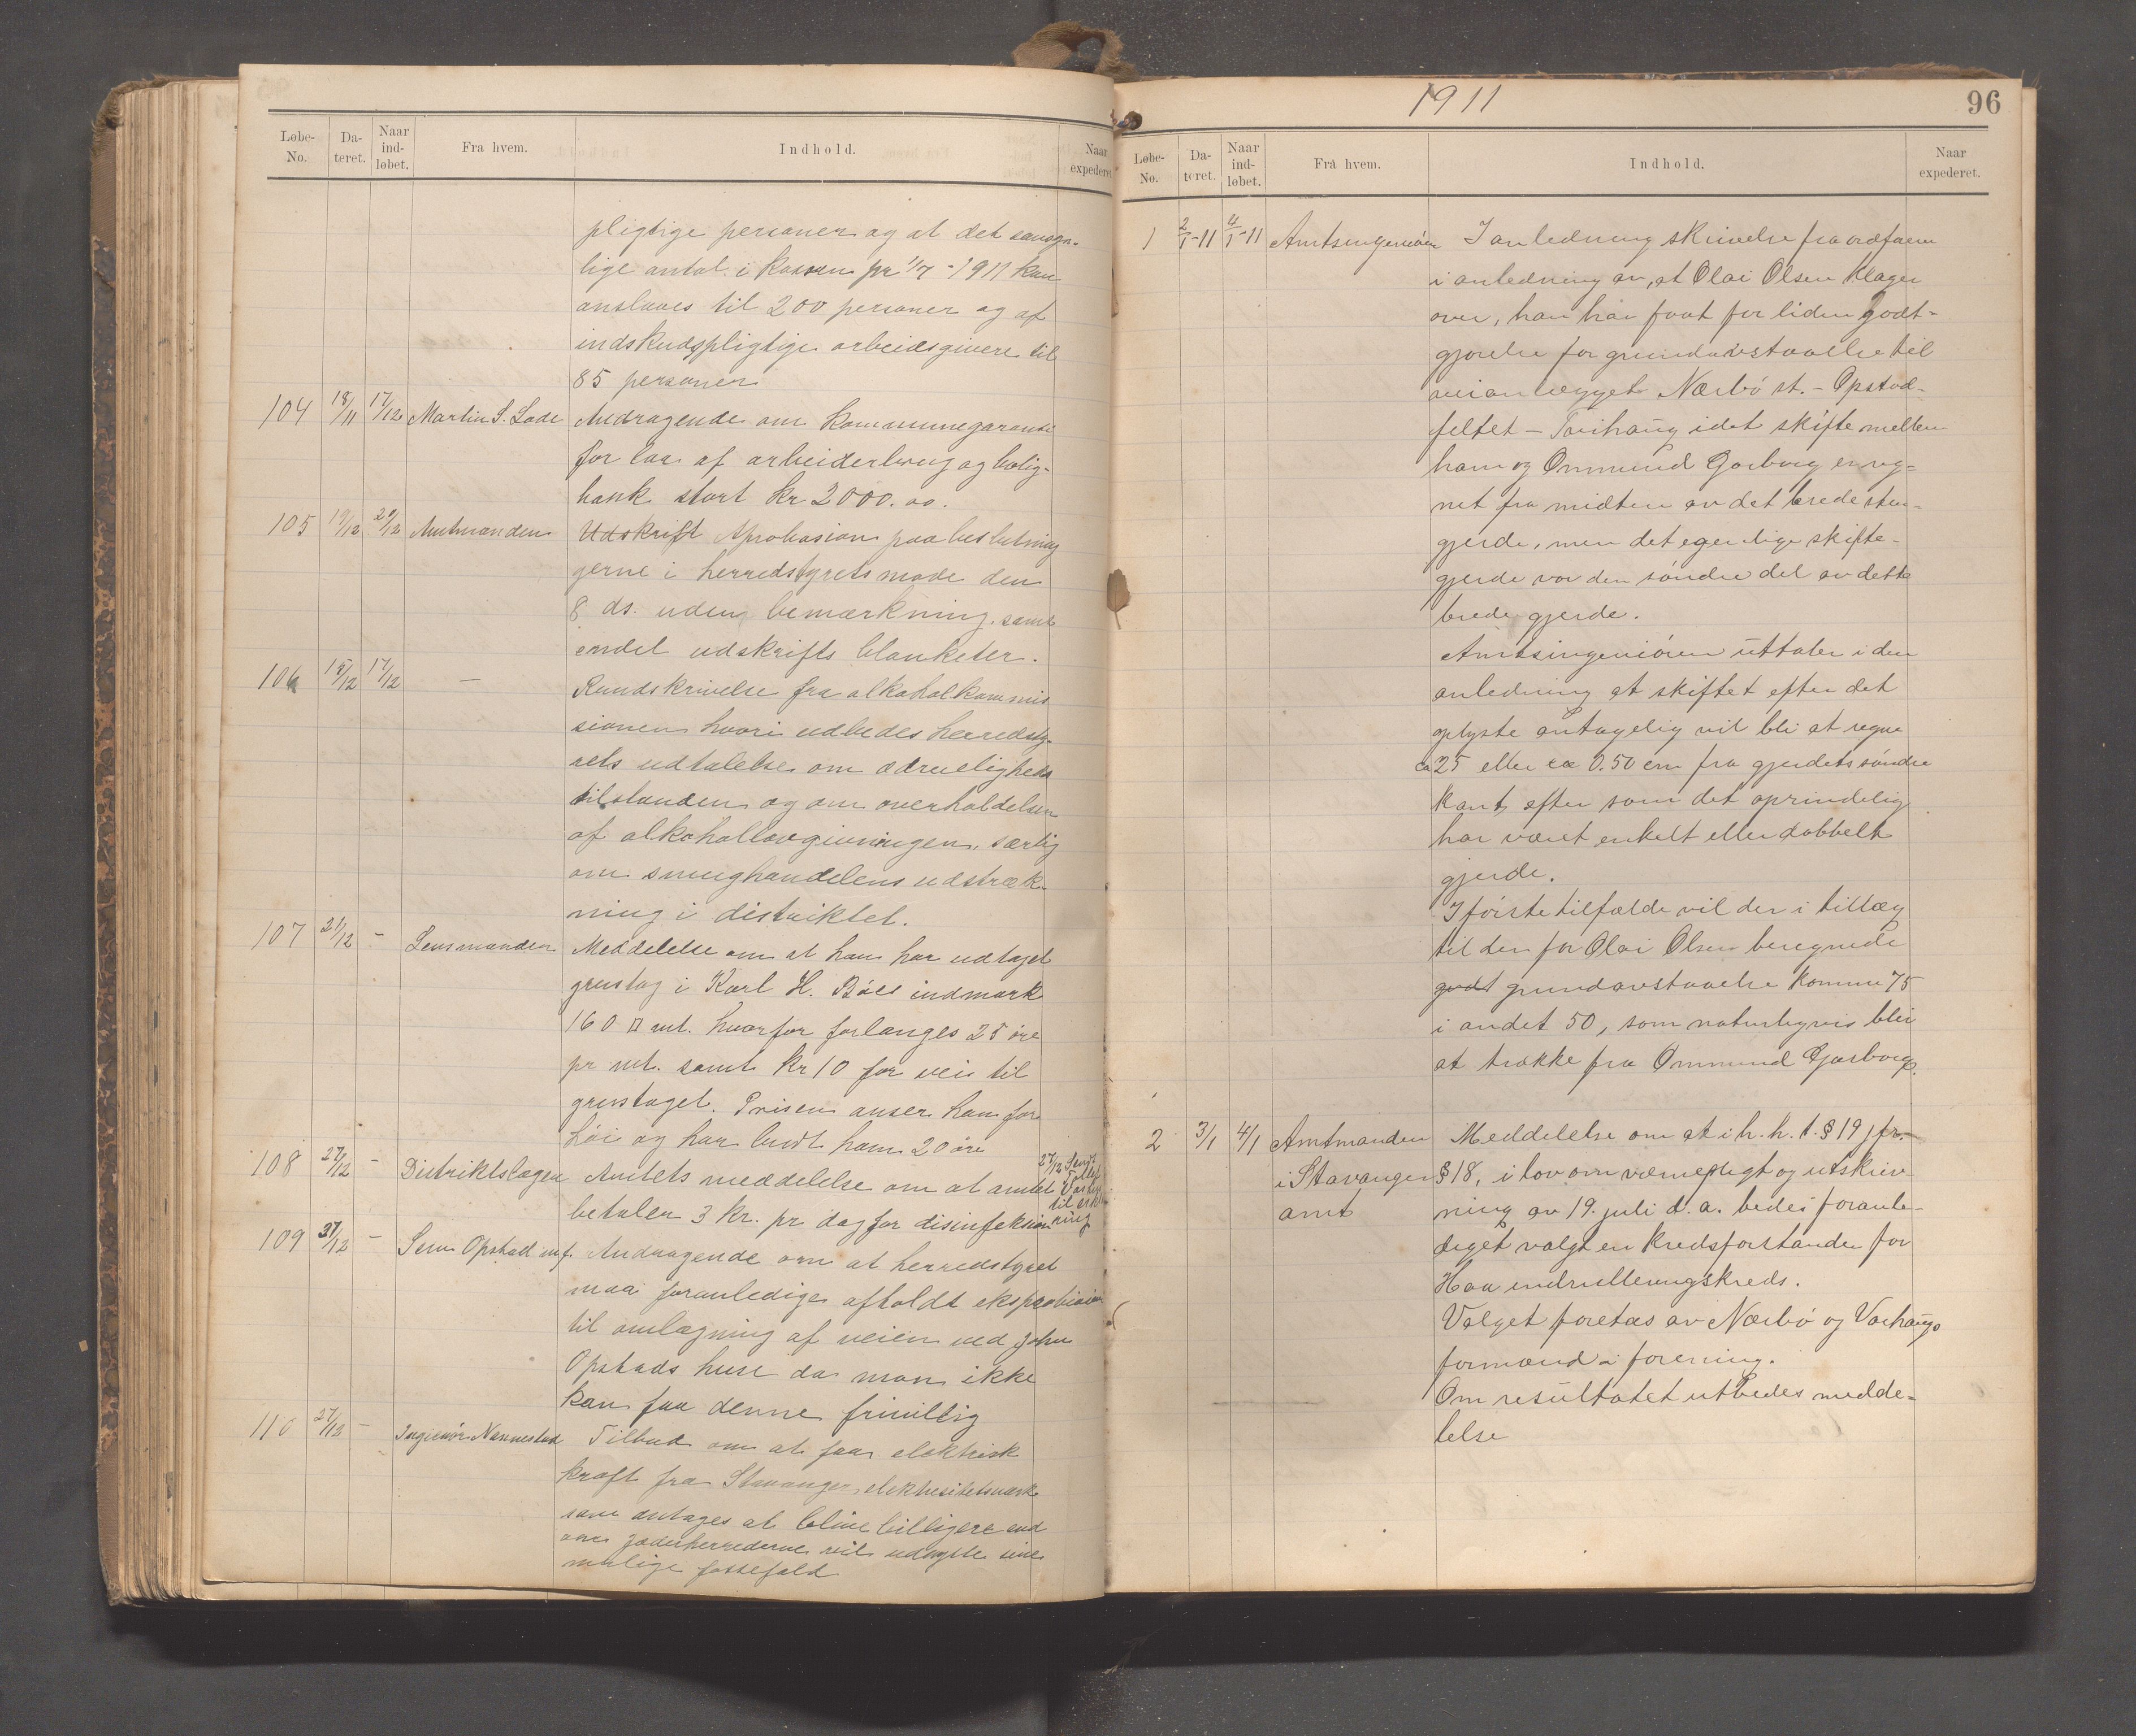 Løbe-No. Dateret. Naar indløbet. Fra hvem. Indhold. Naar expederet.
pligtige personer og at det
lige antal i kassen pr 1/7 - 1911 kan
anslaaes til 200 personer og af
indskudspligtige arbeidsgivere til
85 personer
104 18/11 17/12 Martin S. Lode Andragende om kommunegaranti
for laan af arbeiderbrug og bolig-
bank stort kr 2000.00.
105 19/12 20/12 Amtmanden Udskrift Aprobasion paa beslutning
gerne i herredstyrets møde den
8 ds. uden bemærkning. samt
endel udskrifts blanketer.
106 15/12 17/12 — Rundskrivelse fra alkoholkommis
sionen hvori udbedes herredsty-
rets udtalelse om ædrueligheds
tilstanden og om overholdelsen
af alkohollovgivningen, særlig
om smughandelens udstræk-
ning i distriktet.
107 21/12 - Lensmanden Meddelelse om at han har udtaget
grustag i Karl H. Bøes indmark
160 □ mt. hvorfor forlanges 25 øre
pr mt. samt kr 10 for vei til
grustaget. Prisen anser han for
høi og har budt ham 20 øre
108 27/12 - Distriktslægen Amtets meddelelse om at amtet
betaler 3 kr. pr dag for disinfeksion
27/12
109 27/12 - Sem Opstad mf. Andragende om at herredstyret
maa foranledige afholdt ekspropriasion
til omlægning af veien ved John
Opstads huse da man ikke
kan faa denne frivillig
110 27/12 - Ingeniør Nannestad Tilbud om at faa elektrisk
kraft fra Stavanger elektrisitetsværk
som antages at blive billigere end
om Jæderherrederne vil udbygge sine
mulige fossefald
1911
96
Løbe-No. Dateret. Naar indløbet. Fra hvem. Indhold. Naar expederet.
1 2/1-11 4/1-11 Amtsingeniøren I anledning skrivelse fra ordføren
i anledning av, at Olai Olsen klager
over, han har faat for liden godt-
gjørelse for grundavstaaelse til
veianlægget Nærbø st. - Opstad-
feltet - Tvihaug idet skifte mellem
ham og Ommund Garborg er reg-
net fra midten av det brede sten-
gjerde, men det egenlige skifte-
gjerde var den søndre del av dette
brede gjerde.
Amtsingeniøren uttaler i den
anledning at skiftet efter det
oplyste antagelig vil bli at regne
ca 25 eller ca 0.50 cm fra gjerdets søndre
kant, efter som det oprindelig
har været enkelt eller dobbelt
gjerde.
I første tilfælde vil der i tillæg
til den for Olai Olsen beregnede
godt grundavstaaelse komme 75
i andet 50, som naturligvis blir
at trække fra Ommund Garborg.
2 3/1 4/1 Amtmanden Meddelelse om at i h. h. t. § 19 jfr.
i Stavanger § 18, i lov om værnepligt og utskriv-
amt ning av 19. juli d. a. bedes foranle-
diget valgt en kredsforstander for
Haa indrulleringskreds.
Valget foretas av Nærbø og Varhaugs
formænd i forening.
Om resultatet utbedes medde-
lelse